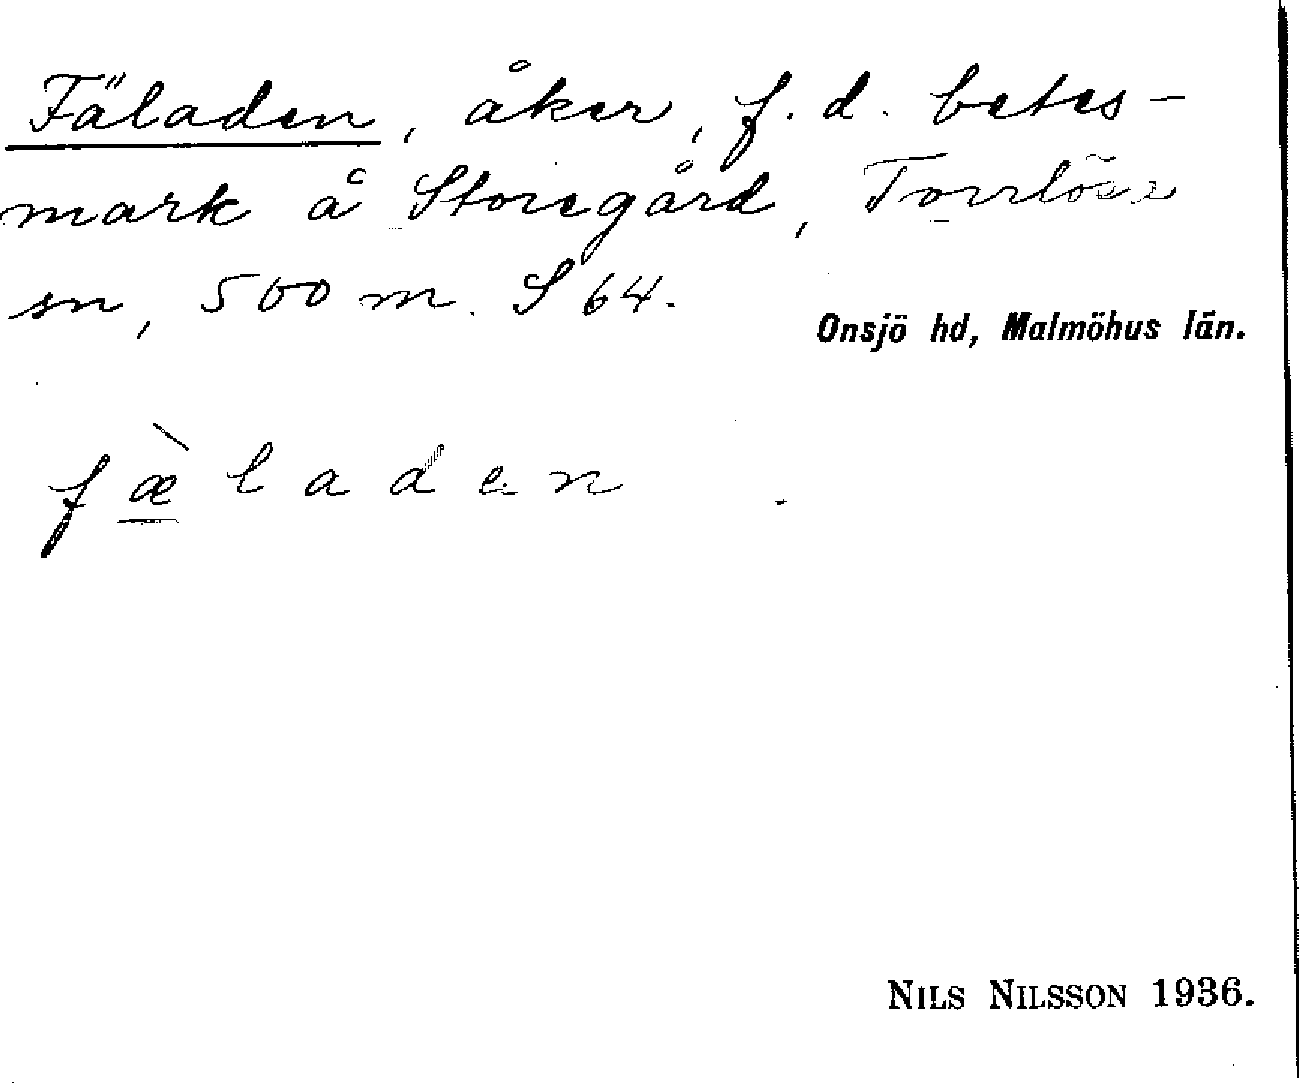 Fäladen, åker, f. d. betes-
mark å Storegård, Torrlösa
sn, 500 m. S 64.
Onsjö hd, Malmöhus län.
fæ̀laden
NILS NILSSON 1936.